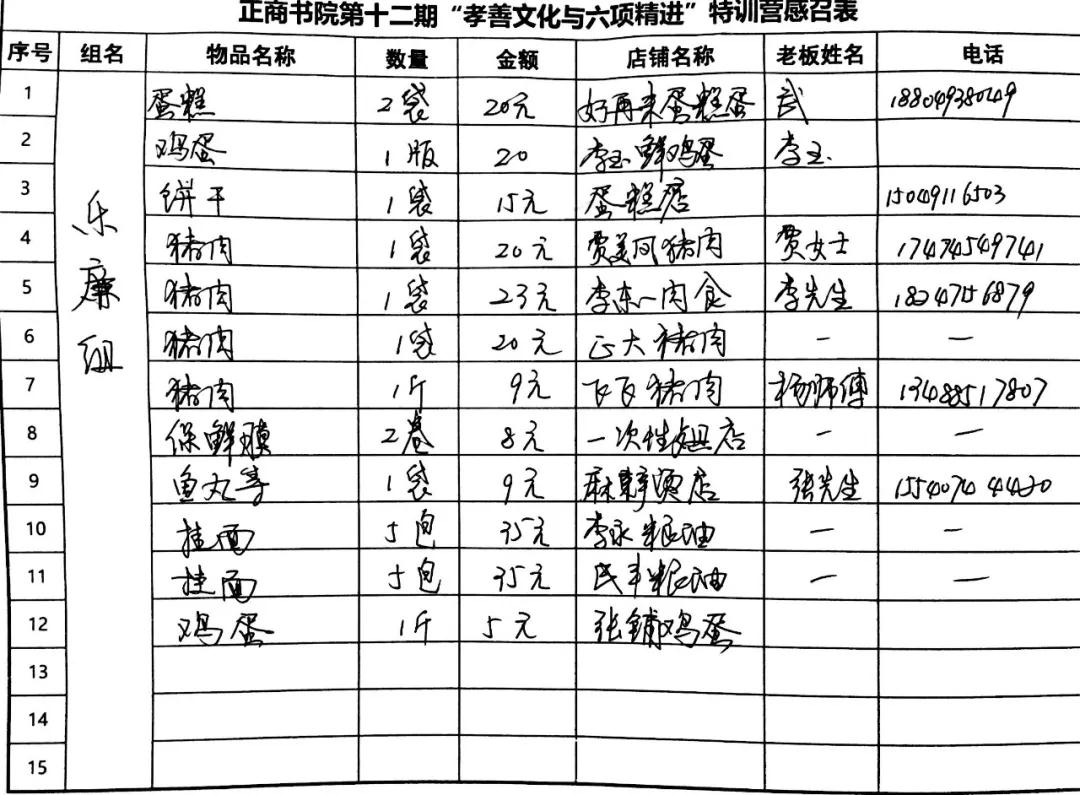 正商书院第十二期“孝善文化与六项精进”特训营感召表
序号 组名 物品名称 数量 金额 店铺名称 老板姓名 电话
乐廉组
1 蛋糕 2袋 20元 好再来蛋糕蛋 武 18804938049
2 鸡蛋 1版 20 李玉鲜鸡蛋 李玉
3 饼干 1袋 15元 蛋糕店 15049116503
4 猪肉 1袋 20元 贾美凤猪肉 贾女士 17474549741
5 猪肉 1袋 23元 李东一肉食 李先生 1824756879
6 猪肉 1袋 20元 正大猪肉 — —
7 猪肉 1斤 9元 飞飞猪肉 杨师傅 13488517807
8 保鲜膜 2卷 8元 一次性 店 — —
9 鱼丸等 1袋 9元 麻辣 店 张先生 15540744420
10 挂面 5包 35元 李永粮油 — —
11 挂面 5包 35元 民丰粮油 — —
12 鸡蛋 1斤 5元 张铺鸡蛋
13
14
15